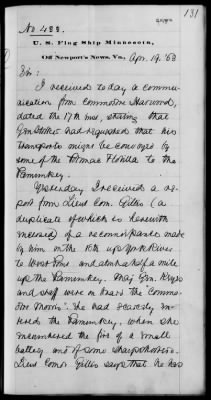 131
No. 433.
U. S. Flag Ship Minnesota,
Off Newport's News, Va., Apr. 19. '63
Sir:
I received today a commu-
nication from Commodore Harwood,
dated the 17th inst, stating that
Genl had requested that his
Transports might be convoyed by
some of the Potomac Flotilla to the
Pamunkey.
Yesterday I received a re-
port from Lieut Com. Gillis (a
duplicate of which is herewith
inclosed) of a reconnoissance made
by him on the 16th up York River
to West Point and about half a mile
up the Pamunkey. Maj Gen Keyes
and staff were on board the "Commo-
dore Morris". She had scarcely en-
tered the Pamunkey, when she
encountered the fire of a small
battery and of some sharpshooters.
Lieut Comdr Gillis says that he has